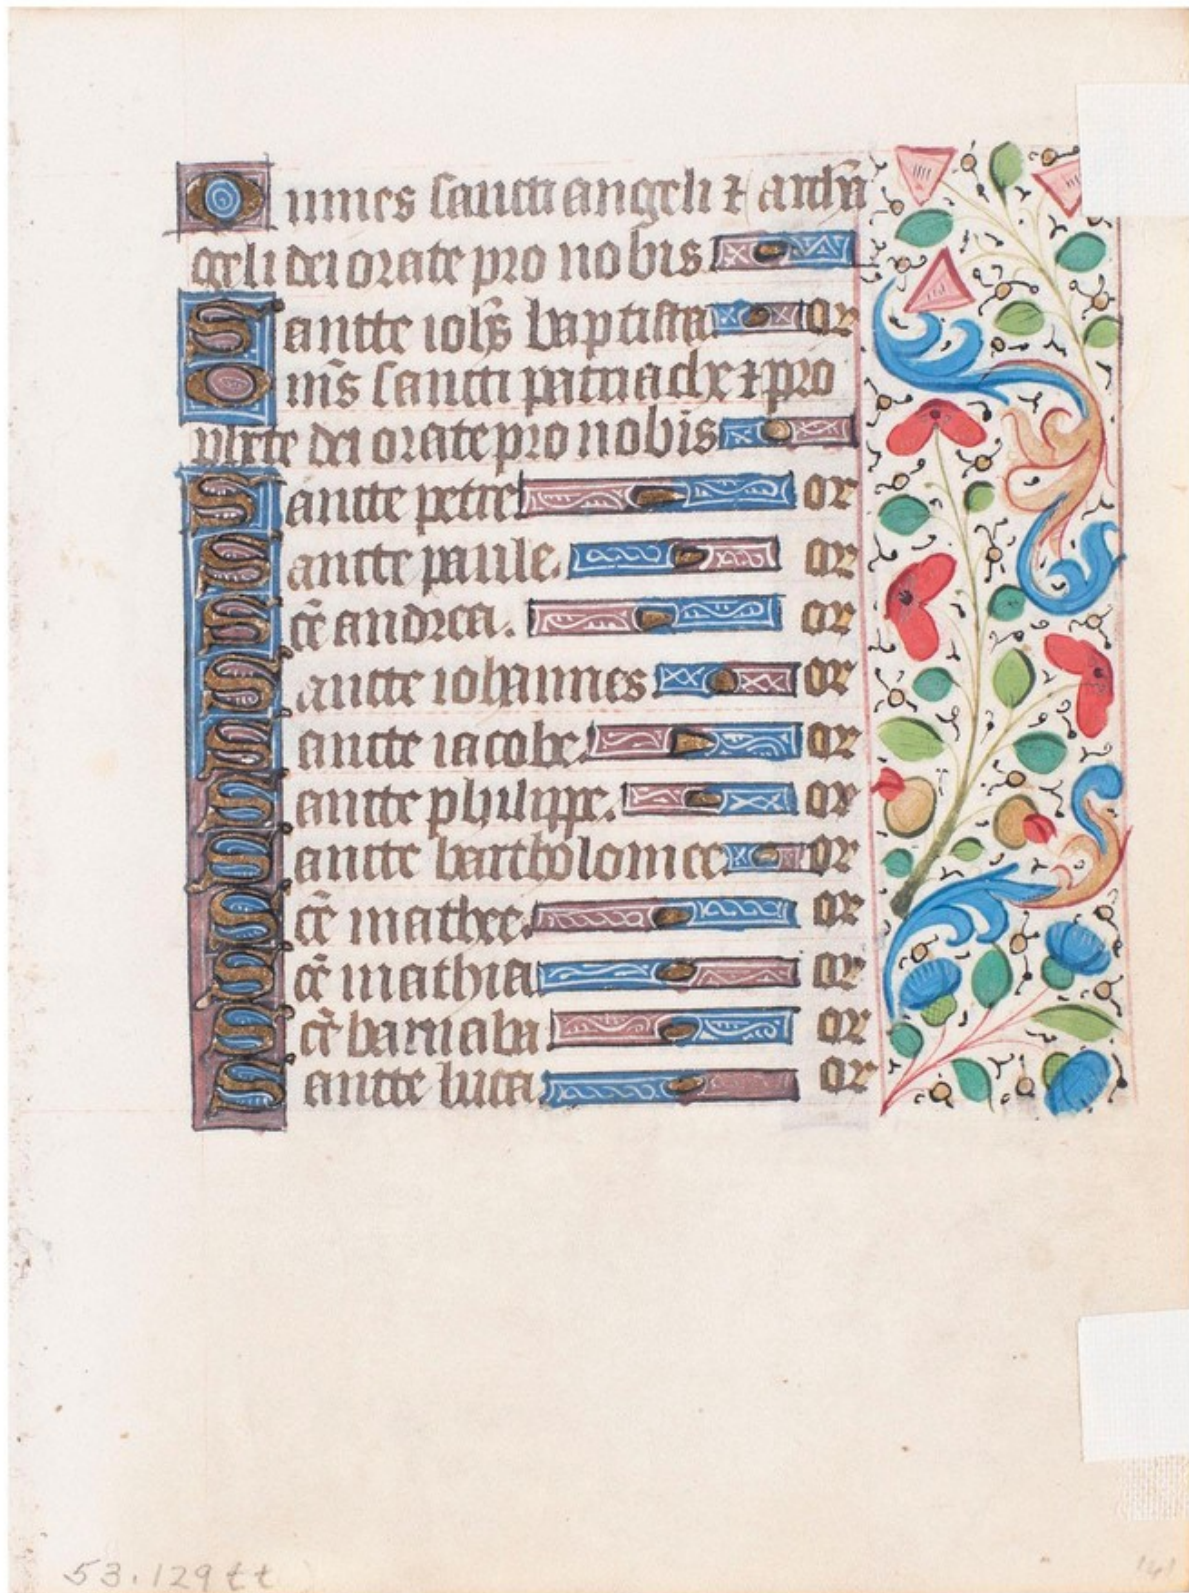 Omnes sancti angeli ⁊ archā
geli dei orate pro nobis
Sancte iohs̄ baptista or
Om̄s sancti patriache ⁊ pro
phete dei orate pro nobis
Sancte petre or
Sancte paule. or
Sc̄e andrea. or
Sancte iohannes or
Sancte iacobe. or
Sancte philippe. or
Sancte bartholomee. or
Sc̄e mathee. or
Sc̄e mathia or
Sc̄e barnaba or
Sancte luca or
53.129tt